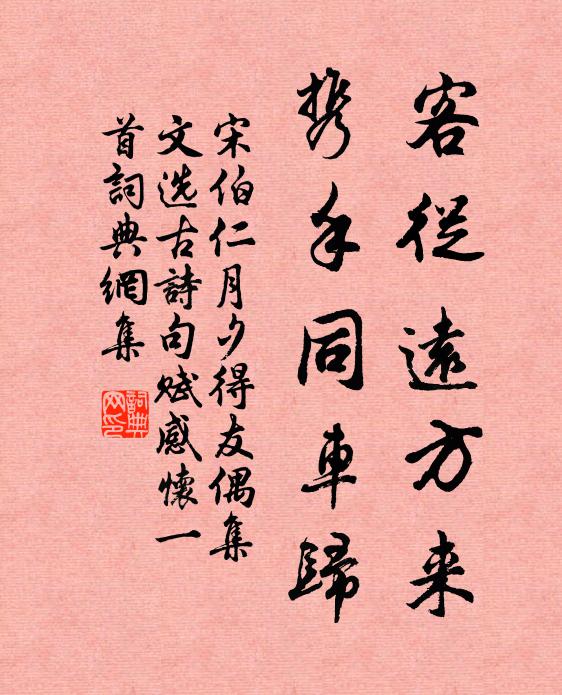 客從遠方来
携手同車歸
宋伯仁月夕得友偶集
文选古詩句赋感懷一
首詞典網集
詞典网印